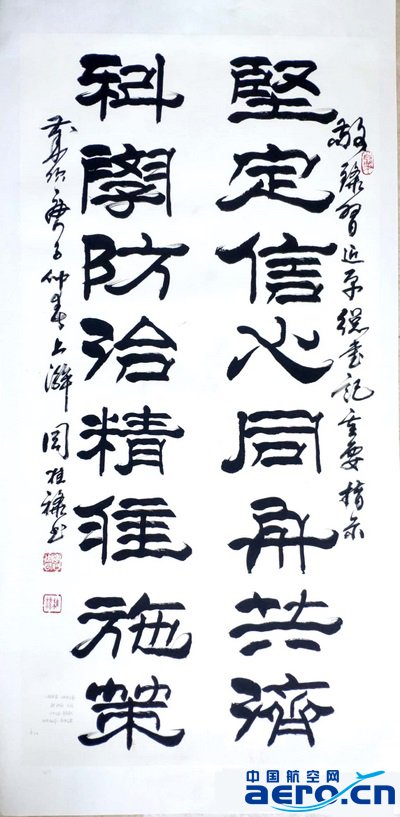 敬錄習近平總書記重要指示
堅定信心同舟共濟
科學防治精准施策
歲次庚子仲春上澣 周桂祿书
中国航空网
aero.cn